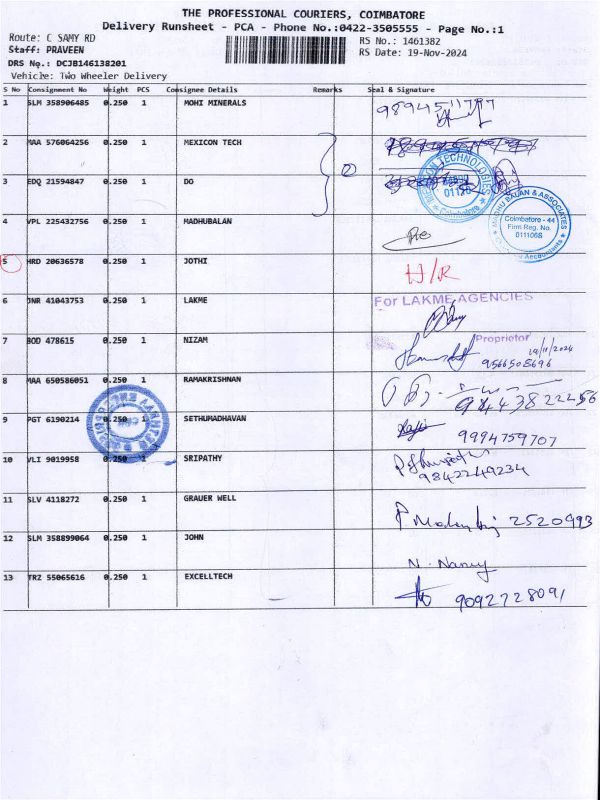 THE PROFESSIONAL COURIERS, COIMBATORE
Delivery Runsheet - PCA - Phone No.:0422-3505555 - Page No.:1
Route: C SAMY RD
Staff: PRAVEEN
DRS No.: DCJB146138201
Vehicle: Two Wheeler Delivery
RS No.: 1461382
RS Date: 19-Nov-2024
S No Consignment No Weight PCS Consignee Details Remarks Seal & Signature
1 SLM 358906485 0.250 1 MOHI MINERALS 9894511777
2 MAA 576064256 0.250 1 MEXICON TECH
3 EDQ 21594847 0.250 1 DO
4 VPL 225432756 0.250 1 MADHUBALAN
Coimbatore - 44
Firm Reg. No.
011106S
5 HRD 20636578 0.250 1 JOTHI H/R
6 JNR 41043753 0.250 1 LAKME For LAKME AGENCIES
Proprietor
7 BOD 478615 0.250 1 NIZAM 19/11/2024
9566508696
8 MAA 650586051 0.250 1 RAMAKRISHNAN 9443822456
9 PGT 6190214 0.250 1 SETHUMADHAVAN 9994759707
10 VLI 9019958 0.250 1 SRIPATHY
9842249234
11 SLV 4118272 0.250 1 GRAUER WELL 2520993
12 SLM 358899064 0.250 1 JOHN N. Nancy
13 TRZ 55065616 0.250 1 EXCELLTECH 9092728091